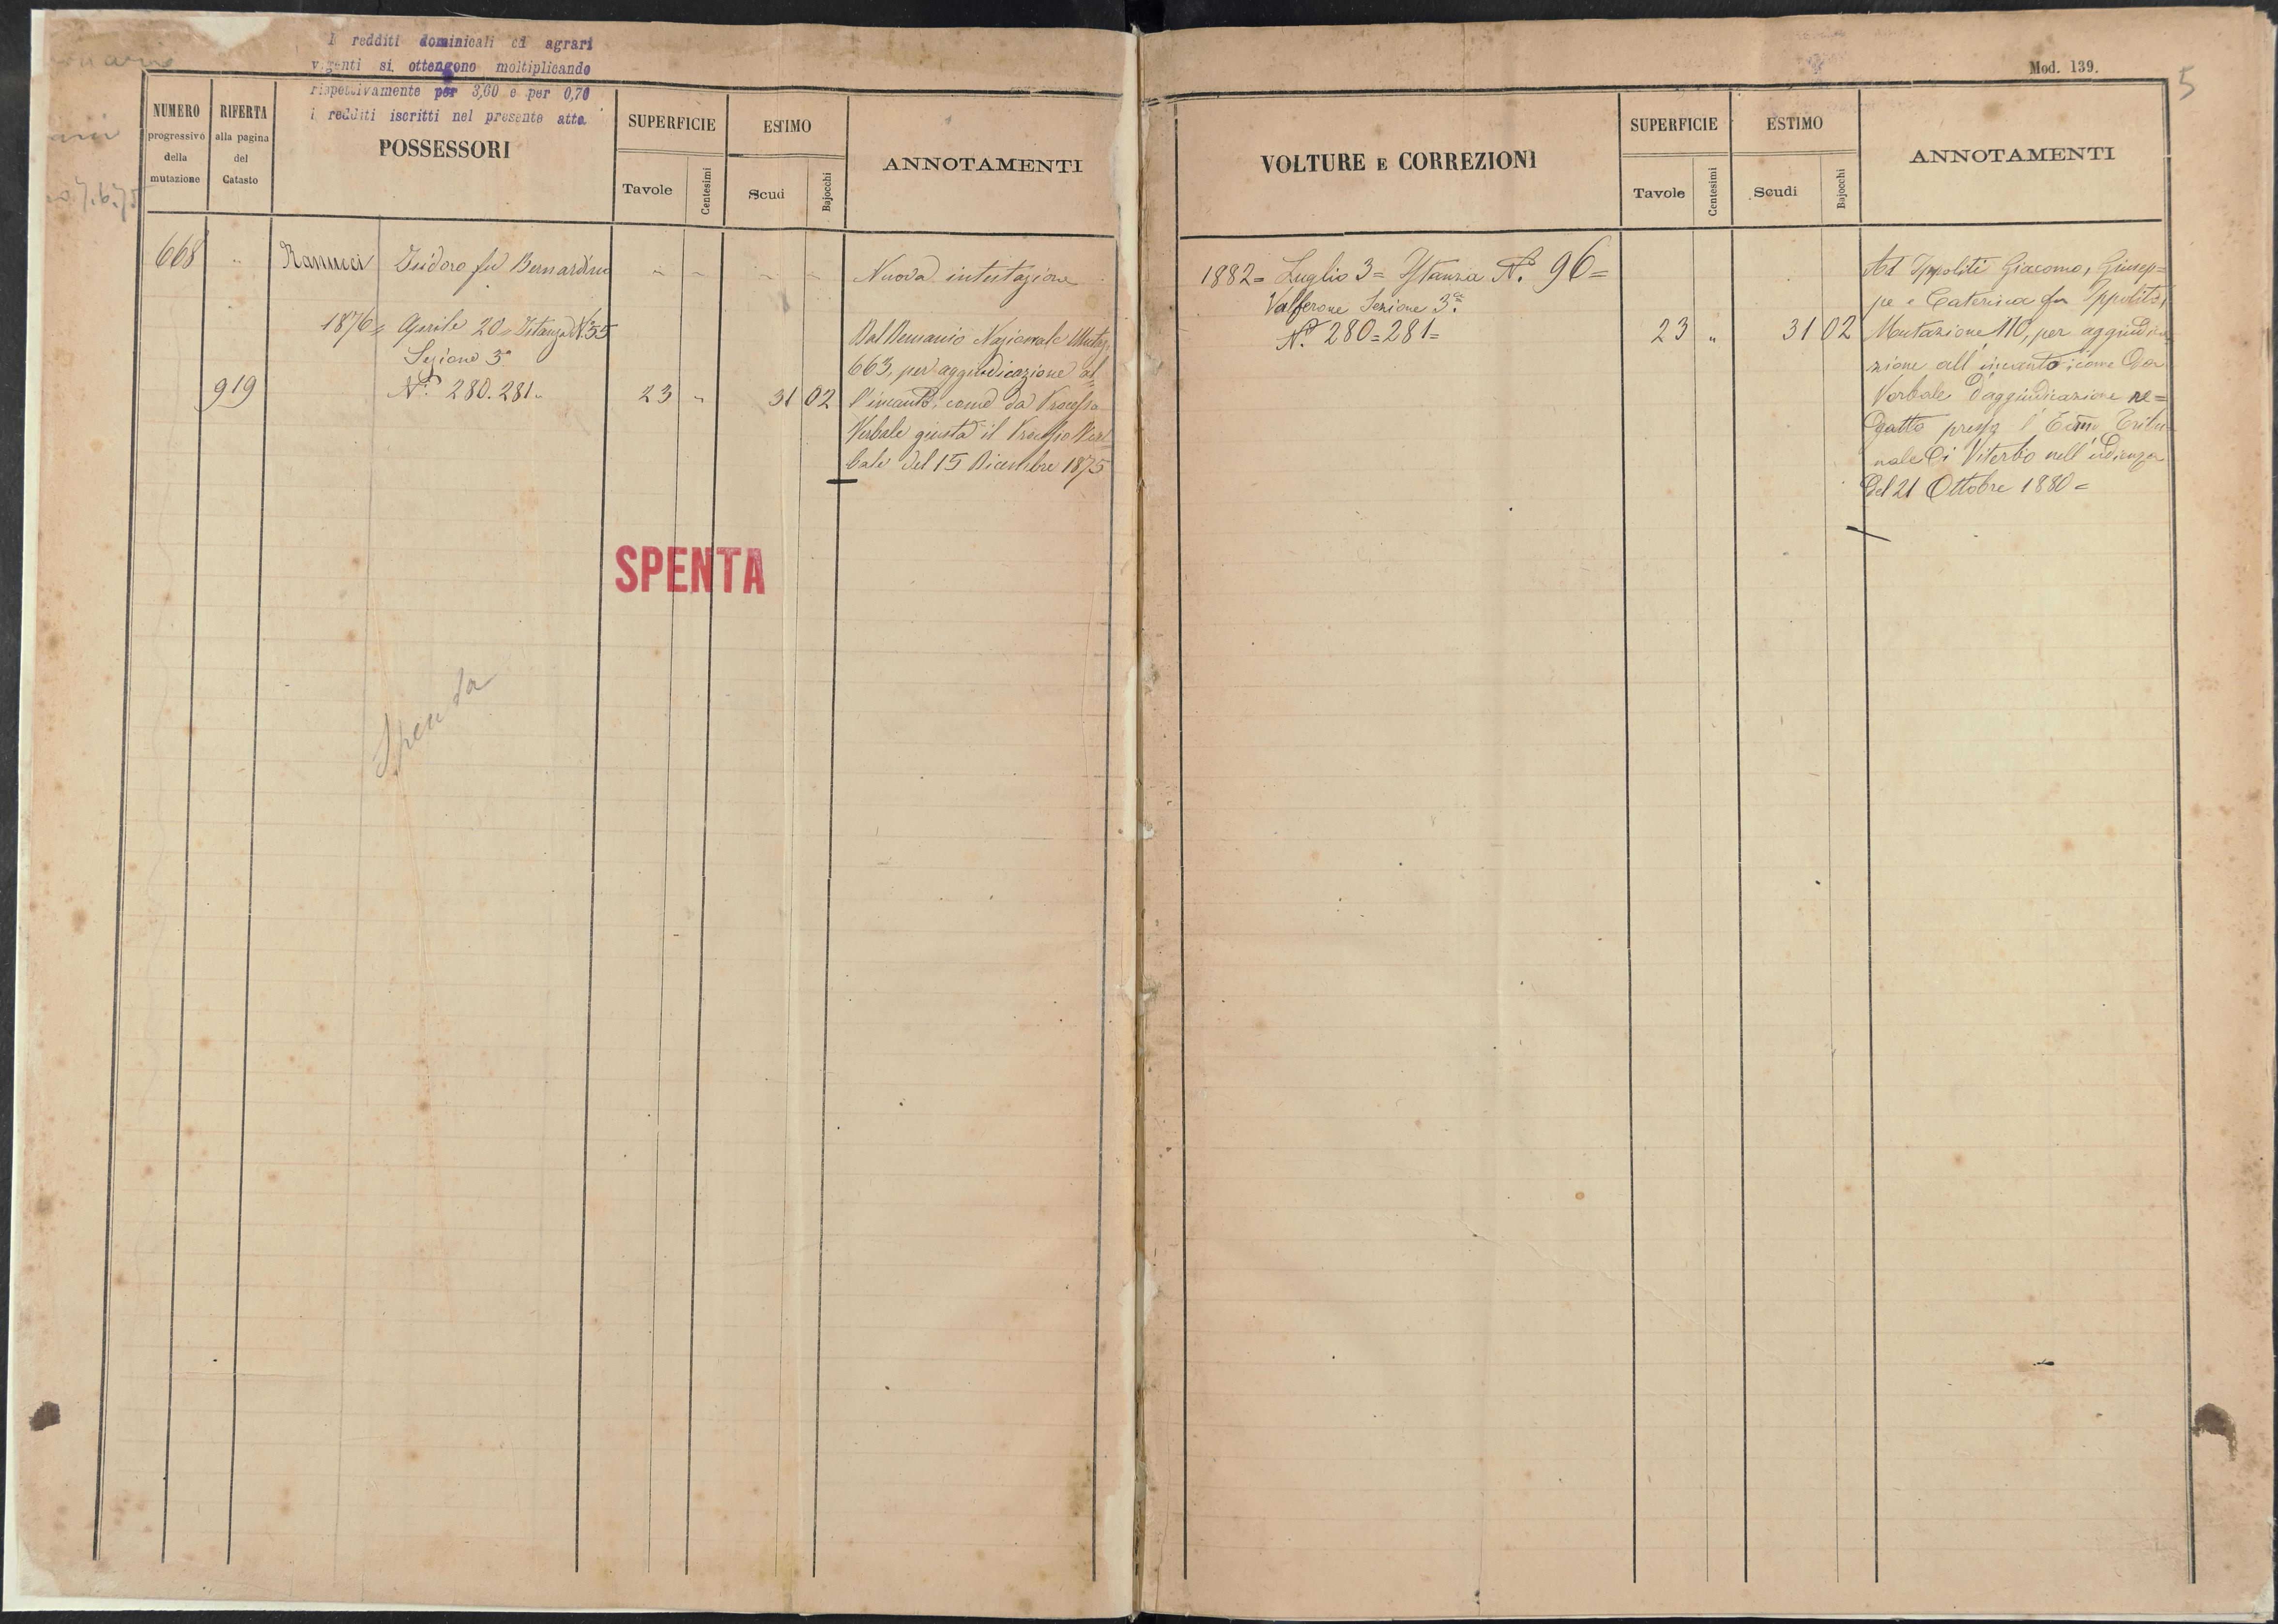 I redditi dominicali ed agrari
vigenti si ottengono moltiplicando
rispettivamente per 3,60 e per 0,70
i redditi iscritti nel presente atto
NUMERO
progressivo
della
mutazione
RIFERTA
alla pagina
del
Catasto
POSSESSORI
SUPERFICIE
Tavole
Centesimi
ESTIMO
Scudi
Bajocchi
ANNOTAMENTI
668 " Ranucci Isidoro fu Bernardino " " " " Nuova intestazione
1876 = Aprile 20 = Istanza N. 55
Sezione 3ª
919 N.° 280. 281. 23 " 31 02
Dal Demanio Nazionale Mutaz.
663, per aggiudicazione al=
l'incanto, come da Processo
Verbale giusta il Processo Ver
bale del 15 Dicembre 1875
SPENTA
Spenta
Mod. 139.
5
VOLTURE E CORREZIONI
SUPERFICIE
Tavole
Centesimi
ESTIMO
Scudi
Bajocchi
ANNOTAMENTI
1882 = Luglio 3 = Istanza N. 96 =
Valferone Sezione 3.ª
N.° 280 = 281 = 23 " 31 02
Ad Ippoliti Giacomo, Giusep=
pe e Caterina fu Ippolito,
Mutazione 110, per aggiudica
zione all'incanto; come da
Verbale d'aggiudicazione re=
datto presso l' Tribu
nale di Viterbo nell'udienza
del 21 Ottobre 1880 =